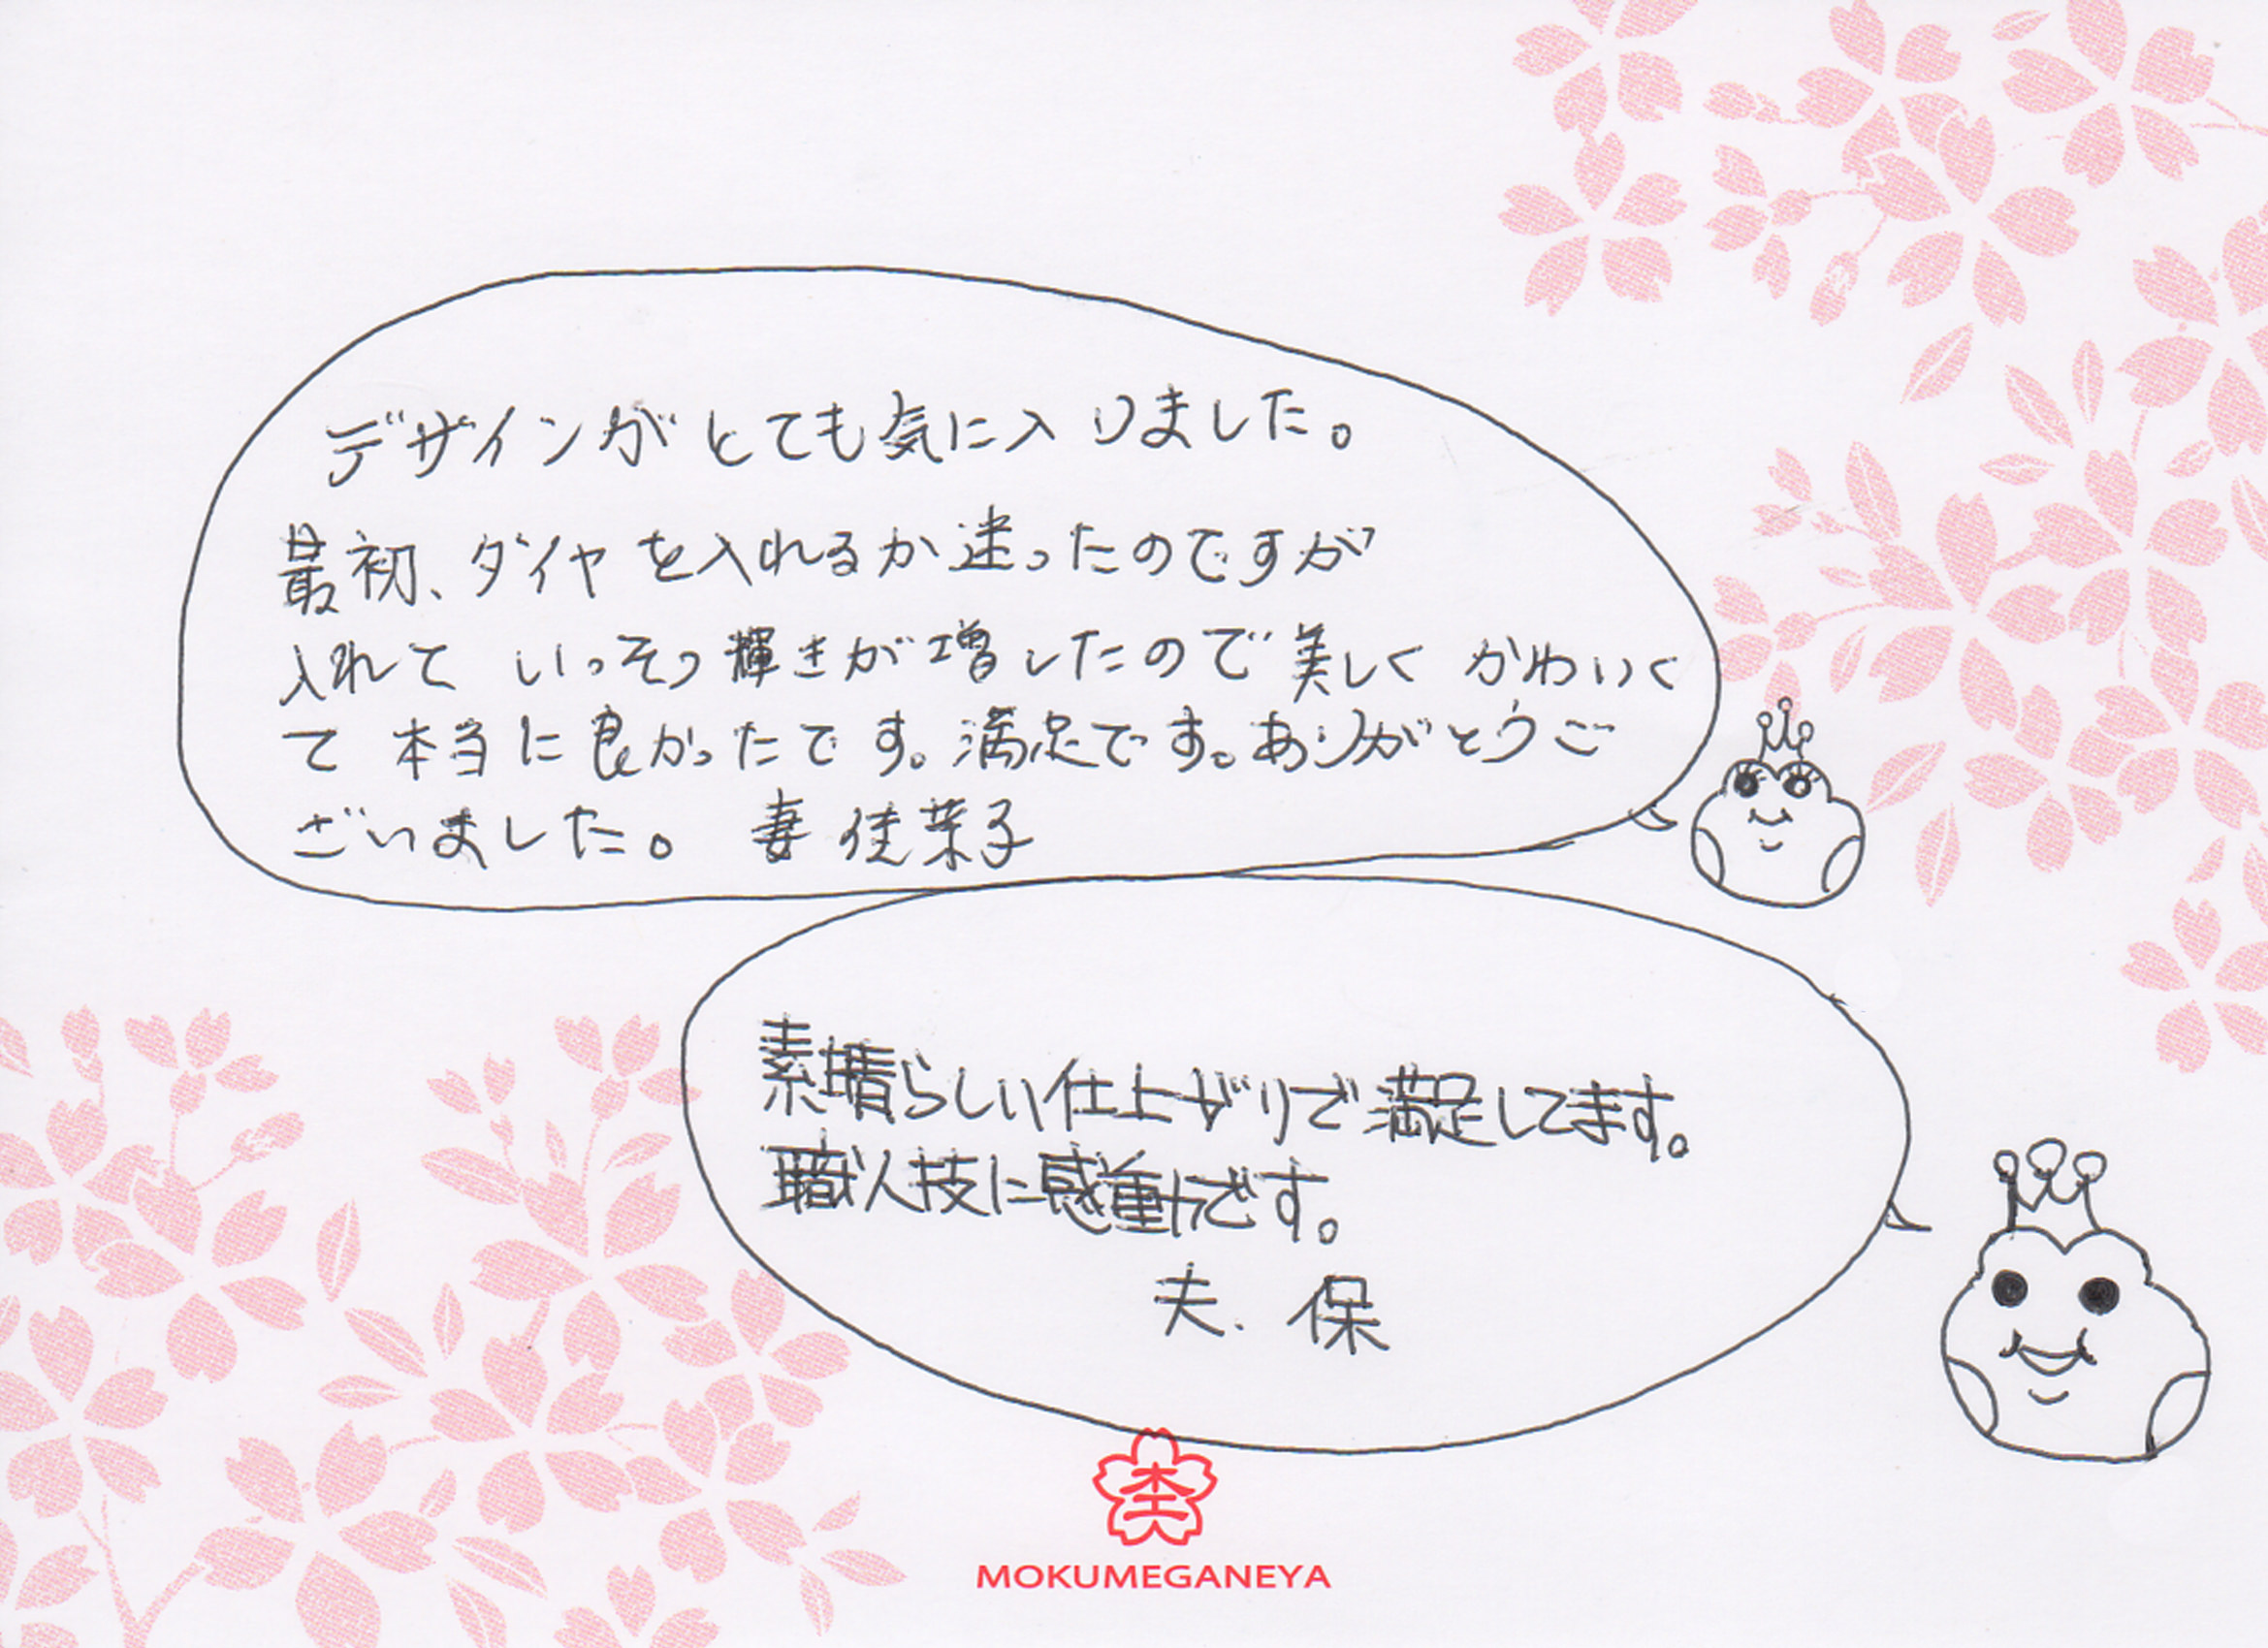 デザインがとても気に入りました。
最初、ダイヤを入れるか迷ったのですが
入れて いっそう輝きが増したので美しく かわいく
て 本当に良かったです。満足です。ありがとうご
ざいました。 妻 佳菜子
素晴らしい仕上がりで満足してます。
職人技に感動です。
夫. 保
MOKUMEGANEYA